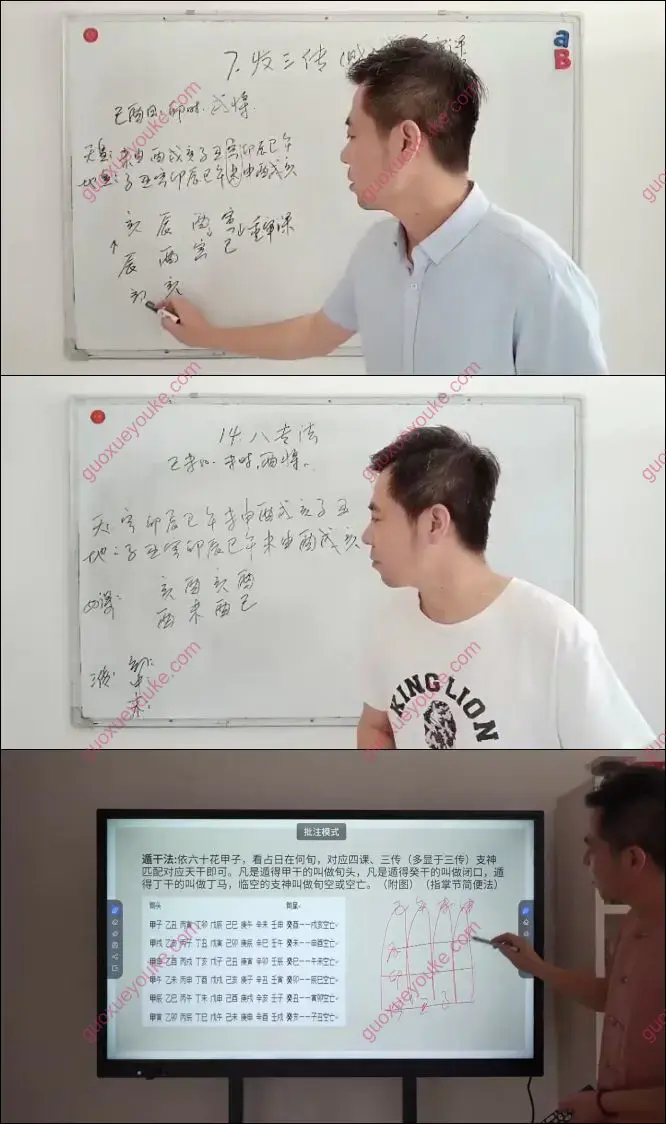 7.发三传
己酉日.卯时.戌将.
天盘:未申酉戌亥子丑寅卯辰巳午
地盘:子丑寅卯辰巳午未申酉戌亥
亥 辰 酉 寅 重审课
↑辰 酉 寅 己
卯 亥
aB
14.八专法
己未日.未时.酉将.
天:寅卯辰巳午未申酉戌亥子丑
地:子丑寅卯辰巳午未申酉戌亥
四课: 亥 酉 亥 酉
酉 未 酉 己
三传:
KING LION
批注模式
遁干法:依六十花甲子，看占日在何旬，对应四课、三传（多显于三传）支神
匹配对应天干即可。凡是遁得甲干的叫做旬头，凡是遁得癸干的叫做闭口，遁
得丁干的叫做丁马，临空的支神叫做旬空或空亡。（附图）（指掌节简便法）
旬头 旬尾
甲子 乙丑 丙寅 丁卯 戊辰 己巳 庚午 辛未 壬申 癸酉——戌亥空亡
甲戌 乙亥 丙子 丁丑 戊寅 己卯 庚辰 辛巳 壬午 癸未——申酉空亡
甲申 乙酉 丙戌 丁亥 戊子 己丑 庚寅 辛卯 壬辰 癸巳——午未空亡
甲午 乙未 丙申 丁酉 戊戌 己亥 庚子 辛丑 壬寅 癸卯——辰巳空亡
甲辰 乙巳 丙午 丁未 戊申 己酉 庚戌 辛亥 壬子 癸丑——寅卯空亡
甲寅 乙卯 丙辰 丁巳 戊午 己未 庚申 辛酉 壬戌 癸亥——子丑空亡
巳 午 未 申
辰
卯
guoxueyouke.com